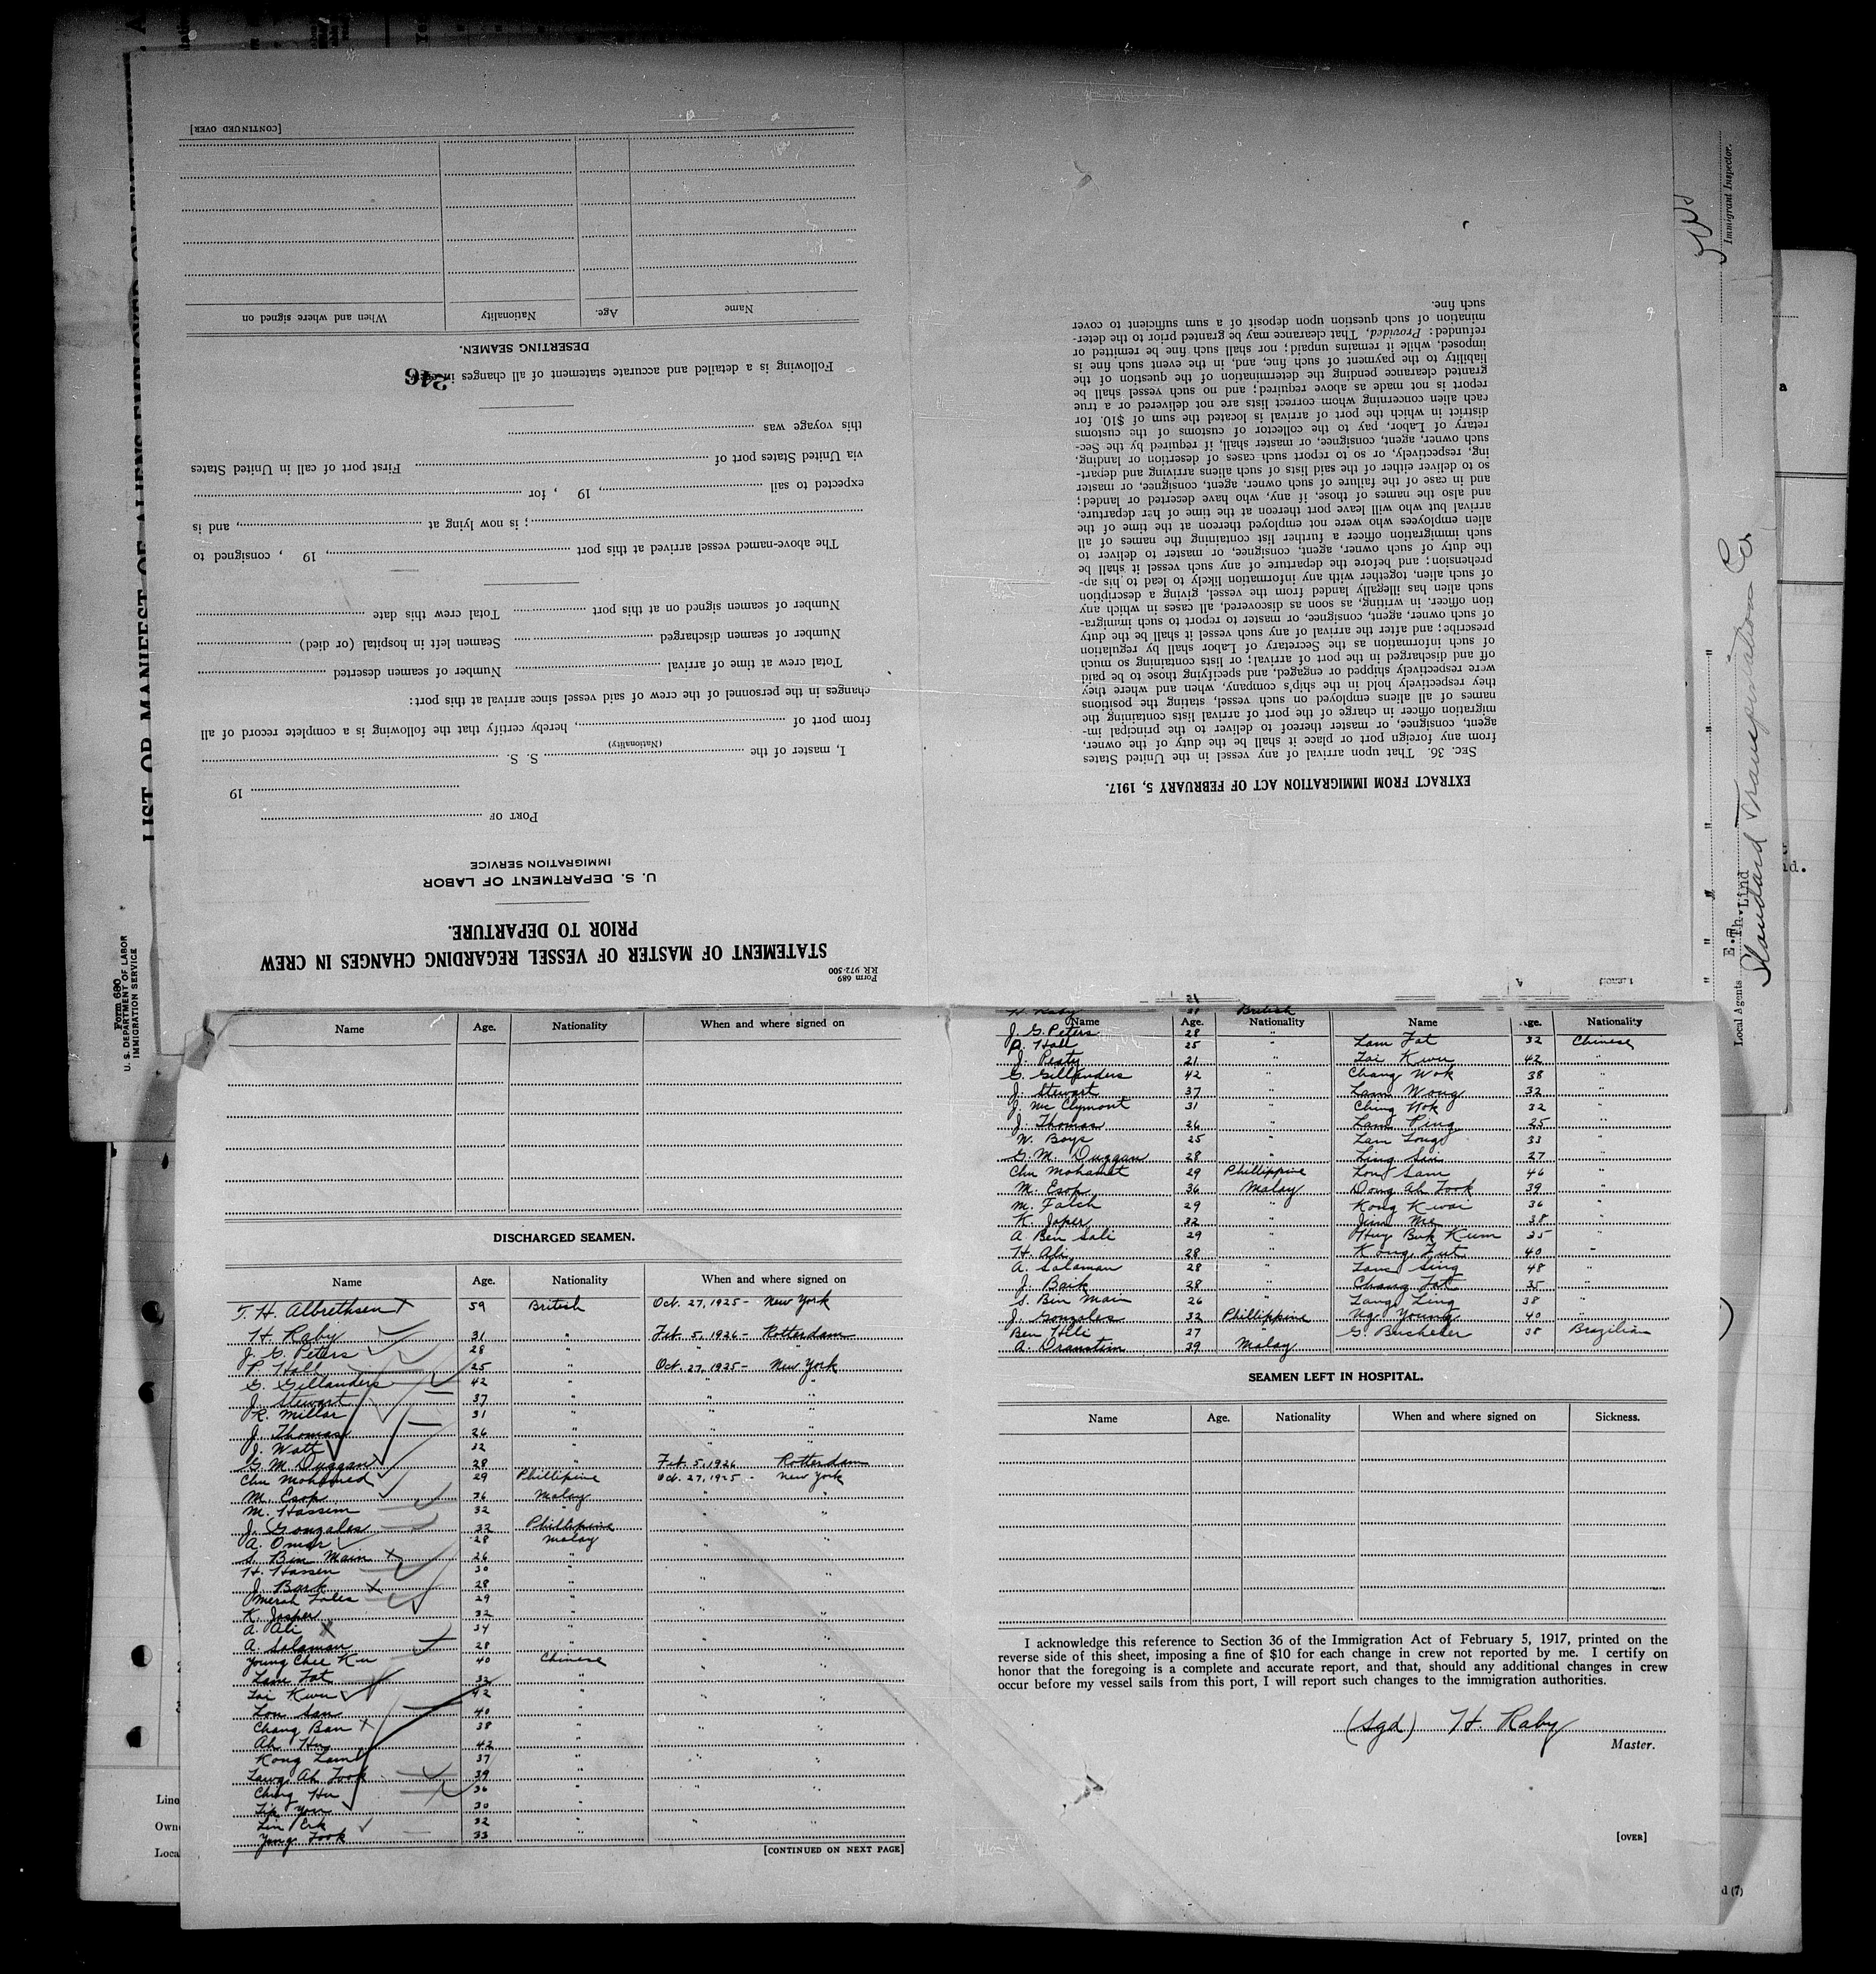 [CONTINUED OVER]
Name Age. Nationality When and where signed on
DESERTING SEAMEN.
Following is a detailed and accurate statement of all changes in crew
246
this voyage was
via United States port of First port of call in United States
expected to sail , 19 , for
; is now lying at , and is
The above-named vessel arrived at this port , 19 , consigned to
Number of seamen signed on at this port Total crew this date
Number of seamen discharged Seamen left in hospital (or died)
Total crew at time of arrival Number of seamen deserted
changes in the personnel of the crew of said vessel since arrival at this port:
from port of , hereby certify that the following is a complete record of all
(Nationality)
I, master of the S. S.
19
PORT OF
IMMIGRATION SERVICE
U. S. DEPARTMENT OF LABOR
PRIOR TO DEPARTURE.
STATEMENT OF MASTER OF VESSEL REGARDING CHANGES IN CREW
Form 689
RR 972-500
EXTRACT FROM IMMIGRATION ACT OF FEBRUARY 5, 1917.
SEC. 36. That upon arrival of any vessel in the United States
from any foreign port or place it shall be the duty of the owner,
agent, consignee, or master thereof to deliver to the principal im-
migration officer in charge of the port of arrival lists containing the
names of all aliens employed on such vessel, stating the positions
they respectively hold in the ship's company, when and where they
were respectively shipped or engaged, and specifying those to be paid
off and discharged in the port of arrival; or lists containing so much
of such information as the Secretary of Labor shall by regulation
prescribe; and after the arrival of any such vessel it shall be the duty
of such owner, agent, consignee, or master to report to such immigra-
tion officer, in writing, as soon as discovered, all cases in which any
such alien has illegally landed from the vessel, giving a description
of such alien, together with any information likely to lead to his ap-
prehension; and before the departure of any such vessel it shall be
the duty of such owner, agent, consignee, or master to deliver to
such immigration officer a further list containing the names of all
alien employees who were not employed thereon at the time of the
arrival but who will leave port thereon at the time of her departure,
and also the names of those, if any, who have deserted or landed;
and in case of the failure of such owner, agent, consignee, or master
so to deliver either of the said lists of such aliens arriving and depart-
ing, respectively, or so to report such cases of desertion or landing,
such owner, agent, consignee, or master shall, if required by the Sec-
retary of Labor, pay to the collector of customs of the customs
district in which the port of arrival is located the sum of $10 for
each alien concerning whom correct lists are not delivered or a true
report is not made as above required; and no such vessel shall be
granted clearance pending the determination of the question of the
liability to the payment of such fine, and, in the event such fine is
imposed, while it remains unpaid; nor shall such fine be remitted or
refunded: Provided, That clearance may be granted prior to the deter-
mination of such question upon deposit of a sum sufficient to cover
such fine.
LIST OR MANIFEST OF ALIENS EMPLOYED ON THE
Form 680
U. S. DEPARTMENT OF LABOR
IMMIGRATION SERVICE
Immigrant Inspector.
Local Agents
E. Th. Lind
Standard Transportation Co.
Name Age. Nationality When and where signed on
DISCHARGED SEAMEN.
Name Age. Nationality When and where signed on
T. H. Albrethsen X 59 British Oct. 27, 1925 - New York
H. Raby 31 " Feb. 5, 1926 - Rotterdam
J. G. Peters 28 " " "
P. Hall 25 " Oct. 27, 1925 - New York
G. Gillanders 42 " " "
J. Stewart 37 " " "
R. Millar 31 " " "
J. Thomas 26 " " "
J. Watt 32 " " "
G. M. Duggan 28 " Feb. 5, 1926 Rotterdam
Chu Mohamed 29 Phillipine Oct. 27, 1925 - New York
M. Esop 36 Malay " "
M. Hassem 32 " " "
J. Gonzales 32 Phillipine " "
A. Omar 28 Malay " "
S. Bin Main X 26 " " "
H. Hassen 30 " " "
J. Bark X 28 " " "
Merah Tales 29 " " "
K. Jasper 32 " " "
A. Ali X 34 " " "
A. Solaman 28 " " "
Young Chee Ku 40 Chinese " "
Lam Fat 32 " " "
Tai Kwu 42 " " "
Lou San 40 " " "
Chang Ban X 38 " " "
Ah Hu 42 " " "
Kong Lam 37 " " "
Tawg Ah Took 39 " " "
Ching Hu 36 " " "
Tip You 30 " " "
Lin Erk 32 " " "
Yang Took 33 " " "
[CONTINUED ON NEXT PAGE]
H. Raby 31 British
Name Age. Nationality Name Age. Nationality
J. G. Peters 28 "
P. Hall 25 " Lam Fat 32 Chinese
J. Peaty 21 " Tai Kwu 42 "
G. Gillanders 42 " Chang Wok 38 "
J. Stewart 37 " Lam Wong 32 "
J. Mc Clymont 31 " Ching Kok 32 "
J. Thomas 26 " Lam Ping 25 "
W. Boys 25 " Lam Song 33 "
G. M. Duggan 28 " Ling Sin 27 "
Chu Mohamat 29 Phillippine Lou Sam 46 "
M. Esop 36 Malay Dong Ah Took 39 "
M. Falch 29 " Kong Kwai 36 "
K. Japer 32 " Jim Me 38 "
A. Ben Sali 29 " Huy Buk Kum 35 "
H. Ali 28 " Kong Fut 40 "
A. Solaman 28 " Fang Sing 48 "
J. Baik 28 " Chang Fat 35 "
S. Bin Main 26 " Tang Ling 38 "
J. Gonzales 32 Phillippine Ng Young 40 "
Ben Hili 27 " G. Bucheler 38 Brazilian
A. Dranstim 39 Malay
SEAMEN LEFT IN HOSPITAL.
Name Age. Nationality When and where signed on Sickness.
I acknowledge this reference to Section 36 of the Immigration Act of February 5, 1917, printed on the
reverse side of this sheet, imposing a fine of $10 for each change in crew not reported by me. I certify on
honor that the foregoing is a complete and accurate report, and that, should any additional changes in crew
occur before my vessel sails from this port, I will report such changes to the immigration authorities.
(Sgd) H. Raby
Master.
[OVER]